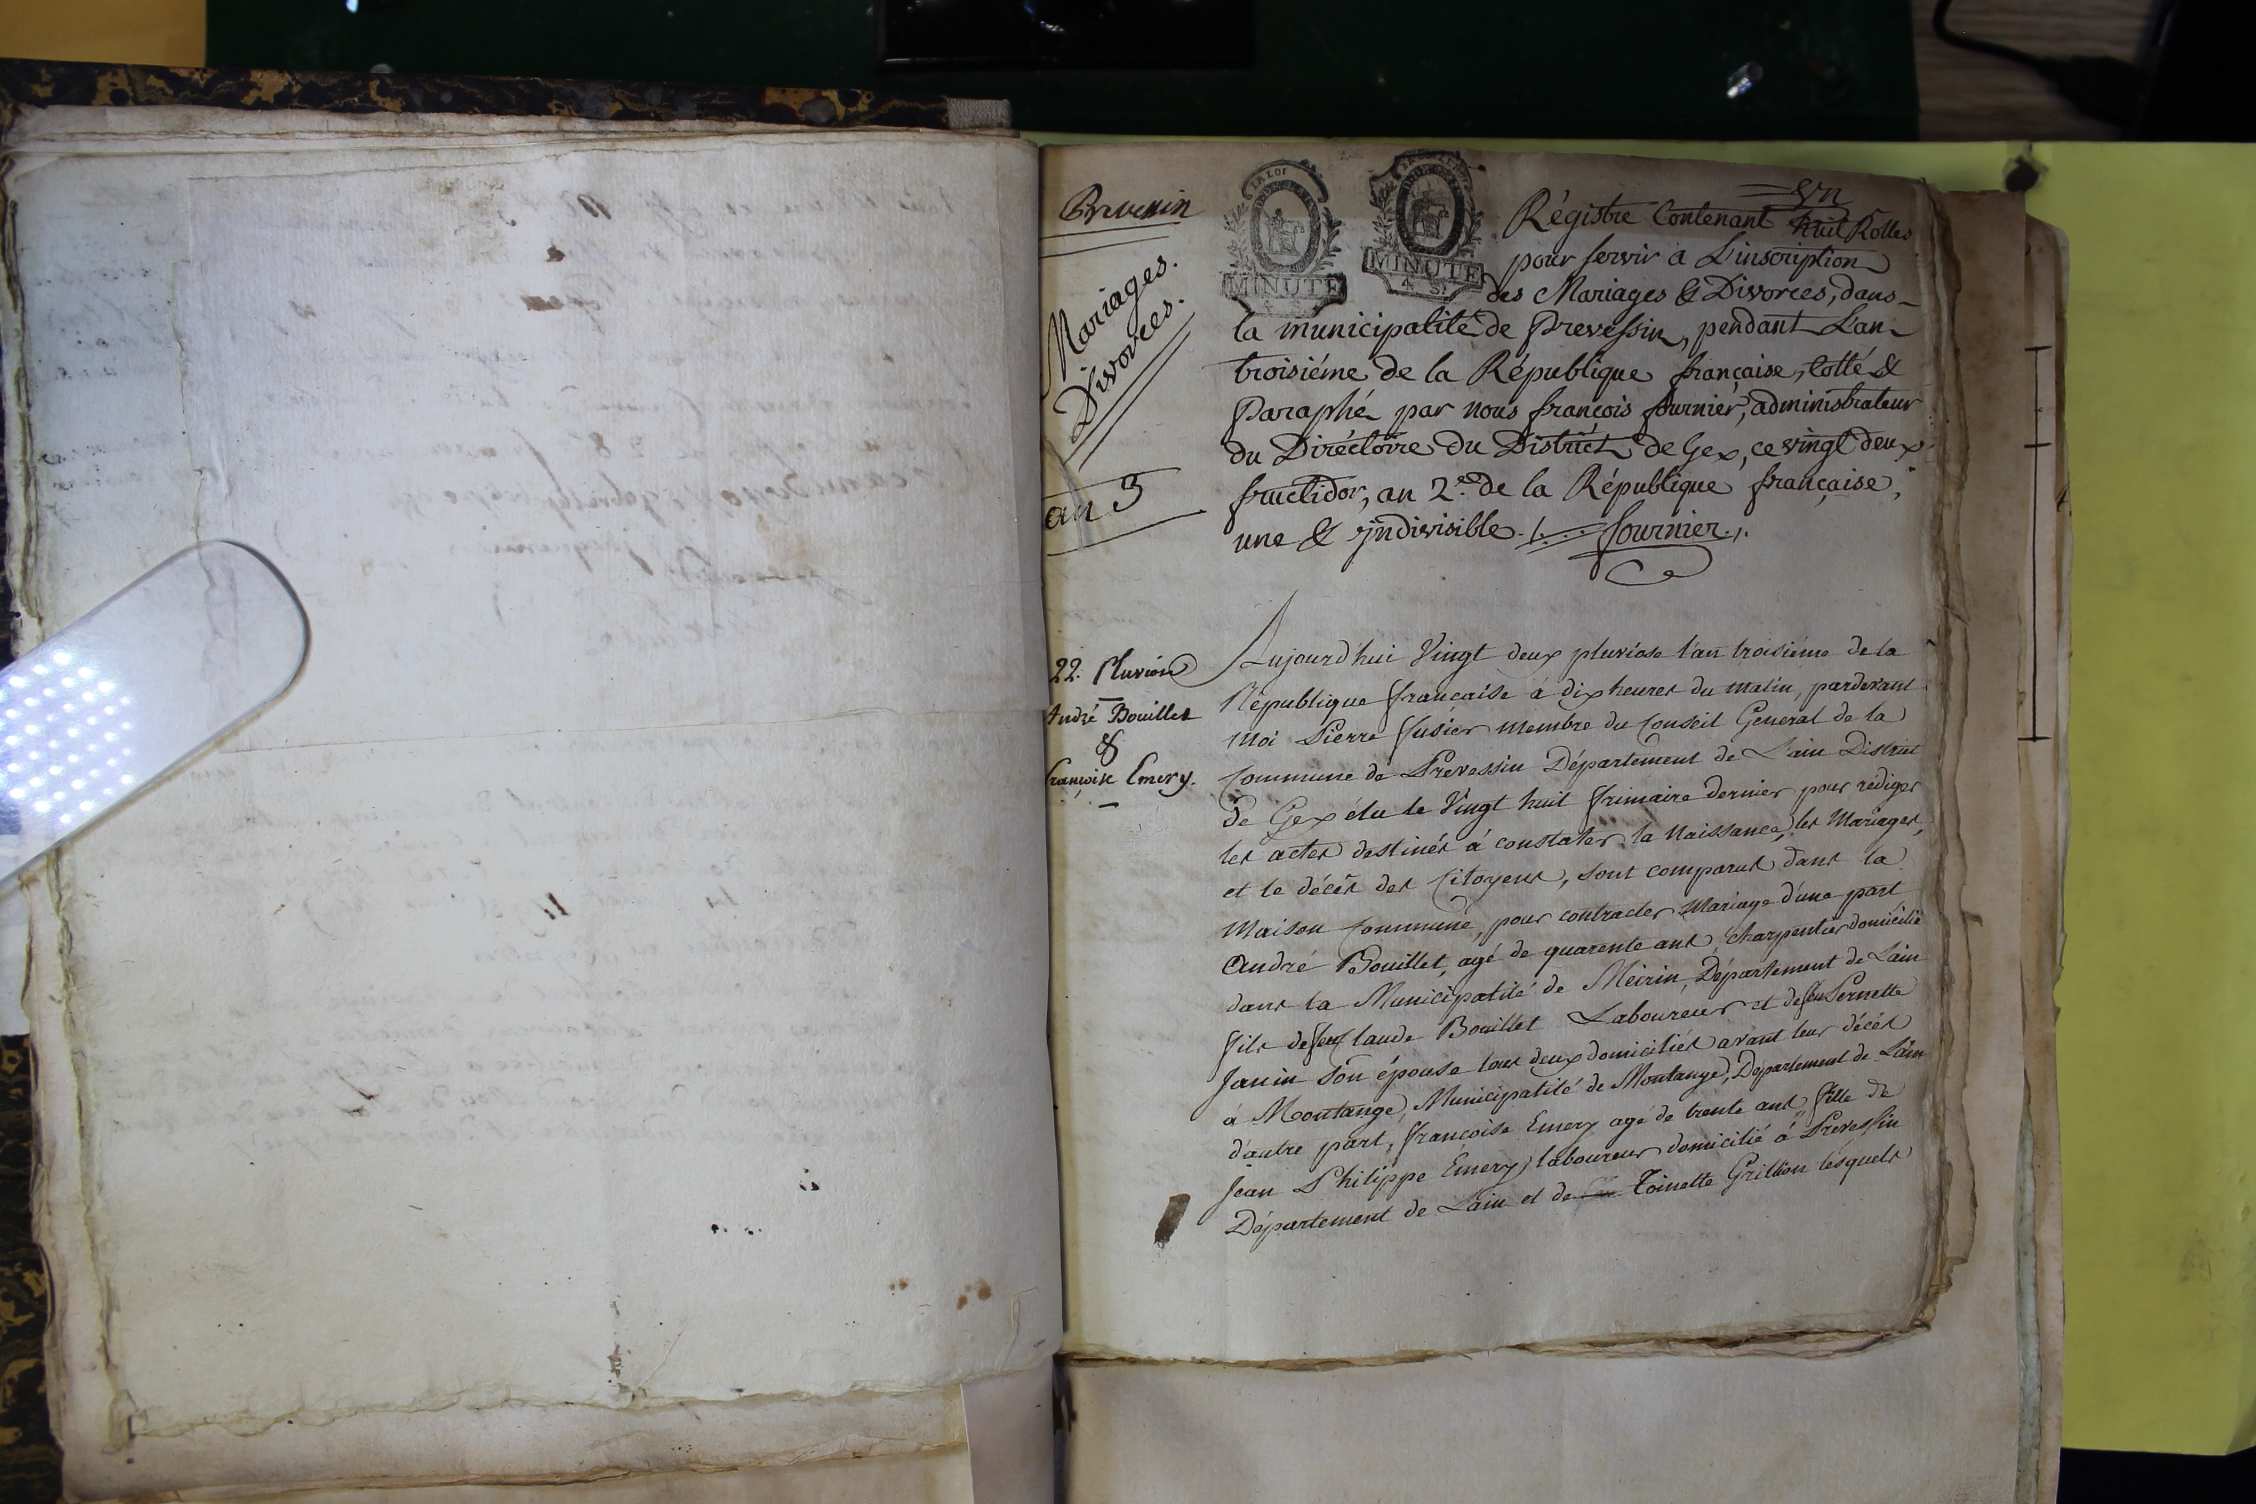 Prevessin
Mariages.
Divorces.
an 3
LA LOI
MINUTE
MINUTE
4 S.
Un
Régistre Contenant huit Rolles
pour servir à L'inscription
des Mariages & Divorces, dans
la municipalité de Prevessin, pendant Lan
troisiéme de la République française, Cotté &
Paraphé par nous françois fournier, administrateur
du Diréctoire du District de Gex, ce vingt deux
fructidor, an 2.e de la République française,
une & indivisible ./. fournier ./.
22. Pluviose
André Bouillet
&
françoise Emery.
Aujourd'hui Vingt deux pluviose l'an troisiéme de la
République francaise à dix heures du matin, pardevant
Moi Pierre fusier membre du Conseil General de la
Commune de Prevessin Département de Lain District
de Gex élu le Vingt huit frimaire dernier pour rédiger
les actes destinés à constater la Naissance, les Mariages,
et le décès des Citoyens, sont comparus dans la
Maison Commune, pour contracter Mariage d'une part
André Bouillet, agé de quarente ans, Charpentier domicilié
dans la Municipalité de Meirin, Département de Lain
fils de feu Claude Bouillet Laboureur et de feu Pernette
Janin son épouse tous deux domiciliés avant leur décès
à Montange, Municipalité de Montange, Département de Lain
d'autre part, francoise Emery agé de trente ans fille de
Jean Philippe Emery laboureur domicilié à Prevessin
Département de Lain et de Toinette Grillion lesquels